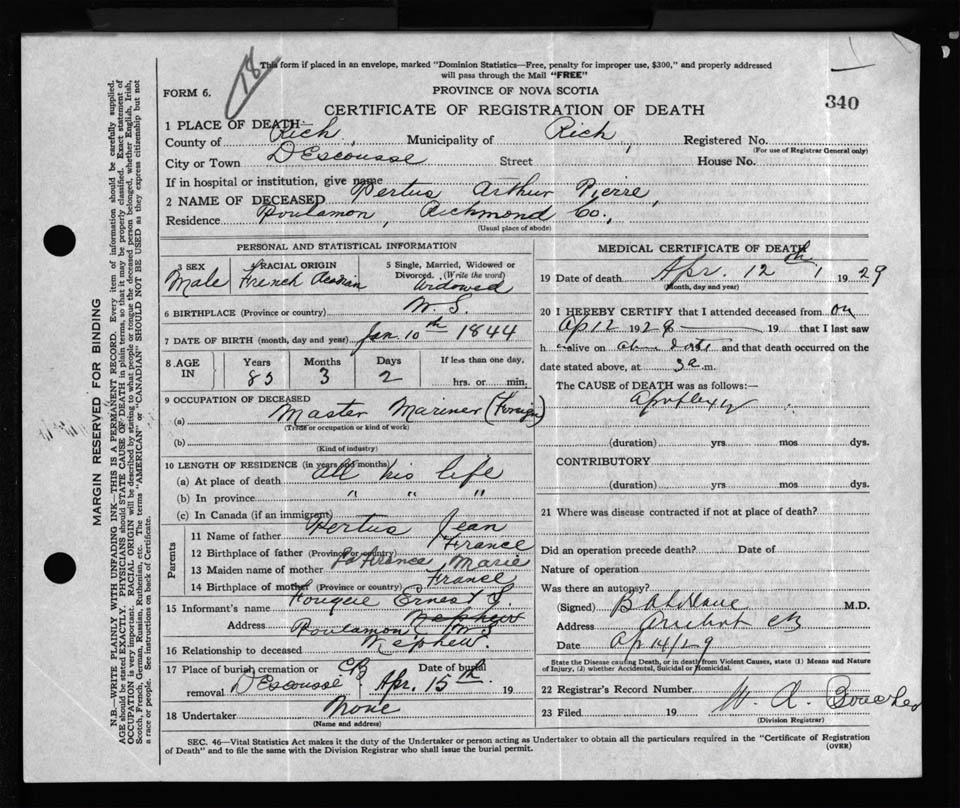 78
This form if placed in an envelope, marked "Dominion Statistics—Free, penalty for improper use, $300," and properly addressed
will pass through the Mail "FREE"
FORM 6.
PROVINCE OF NOVA SCOTIA
CERTIFICATE OF REGISTRATION OF DEATH
340
1 PLACE OF DEATH
County of Rich, Municipality of Rich, Registered No.
(For use of Registrar General only)
City or Town DEscousse Street House No.
If in hospital or institution, give name
2 NAME OF DECEASED Pertus Arthur Pierre,
Residence Poulamon, Richmond Co.,
(Usual place of abode)
PERSONAL AND STATISTICAL INFORMATION
3 SEX Male
RACIAL ORIGIN French Acadian
5 Single, Married, Widowed or
Divorced. (Write the word)
Widowed
6 BIRTHPLACE (Province or country) N.S.
7 DATE OF BIRTH (month, day and year) Jan. 10th 1844
8 AGE IN Years 85 Months 3 Days 2 If less than one day,
hrs. or min.
9 OCCUPATION OF DECEASED
(a) Master Mariner (Foreign)
(Trade or occupation or kind of work)
(b)
(Kind of industry)
10 LENGTH OF RESIDENCE (in years and months)
(a) At place of death All his life
(b) In province " " "
(c) In Canada (if an immigrant)
Parents
11 Name of father Pertus Jean
12 Birthplace of father (Province or country) France
13 Maiden name of mother Marie
14 Birthplace of mother (Province or country) France
15 Informant's name Fougere Ernest S.
Nephew
Address Poulamon, N S
16 Relationship to deceased Nephew.
17 Place of burial cremation or
removal DEscousse CB
Date of burial
Apr. 15th 19
18 Undertaker None
(Name and address)
MEDICAL CERTIFICATE OF DEATH
19 Date of death Apr. 12th 1929
(Month, day and year)
20 I HEREBY CERTIFY that I attended deceased from on
Ap 12 19 19 that I last saw
h alive on above date and that death occurred on the
date stated above, at 3 a.m.
The CAUSE of DEATH was as follows:—
Apoplexy
(duration) yrs. mos dys.
CONTRIBUTORY
(duration) yrs. mos dys.
21 Where was disease contracted if not at place of death?
Did an operation precede death? Date of
Nature of operation
Was there an autopsy?
(Signed) M.D.
Address Arichat CB
Date Ap 14/29
State the Disease causing Death, or in death from Violent Causes, state (1) Means and Nature
of Injury, (2) whether Accidental, Suicidal or Homicidal.
22 Registrar's Record Number
23 Filed 19 W. A. Boucher
(Division Registrar)
SEC. 46—Vital Statistics Act makes it the duty of the Undertaker or person acting as Undertaker to obtain all the particulars required in the "Certificate of Registration
of Death" and to file the same with the Division Registrar who shall issue the burial permit.
(OVER)
MARGIN RESERVED FOR BINDING
N.B.—WRITE PLAINLY WITH UNFADING INK—THIS IS A PERMANENT RECORD. Every item of information should be carefully supplied.
AGE should be stated EXACTLY. PHYSICIANS should STATE CAUSE OF DEATH in plain terms, so that it may be properly classified. Exact statement of
OCCUPATION is very important. RACIAL ORIGIN will be described by stating to what people or tongue the deceased person belonged, whether English, Irish,
Scotch, French, German, Russian, Ruthenian, etc. The terms "AMERICAN" or "CANADIAN" SHOULD NOT BE USED as they express citizenship but not
a race or people. See instructions on back of Certificate.